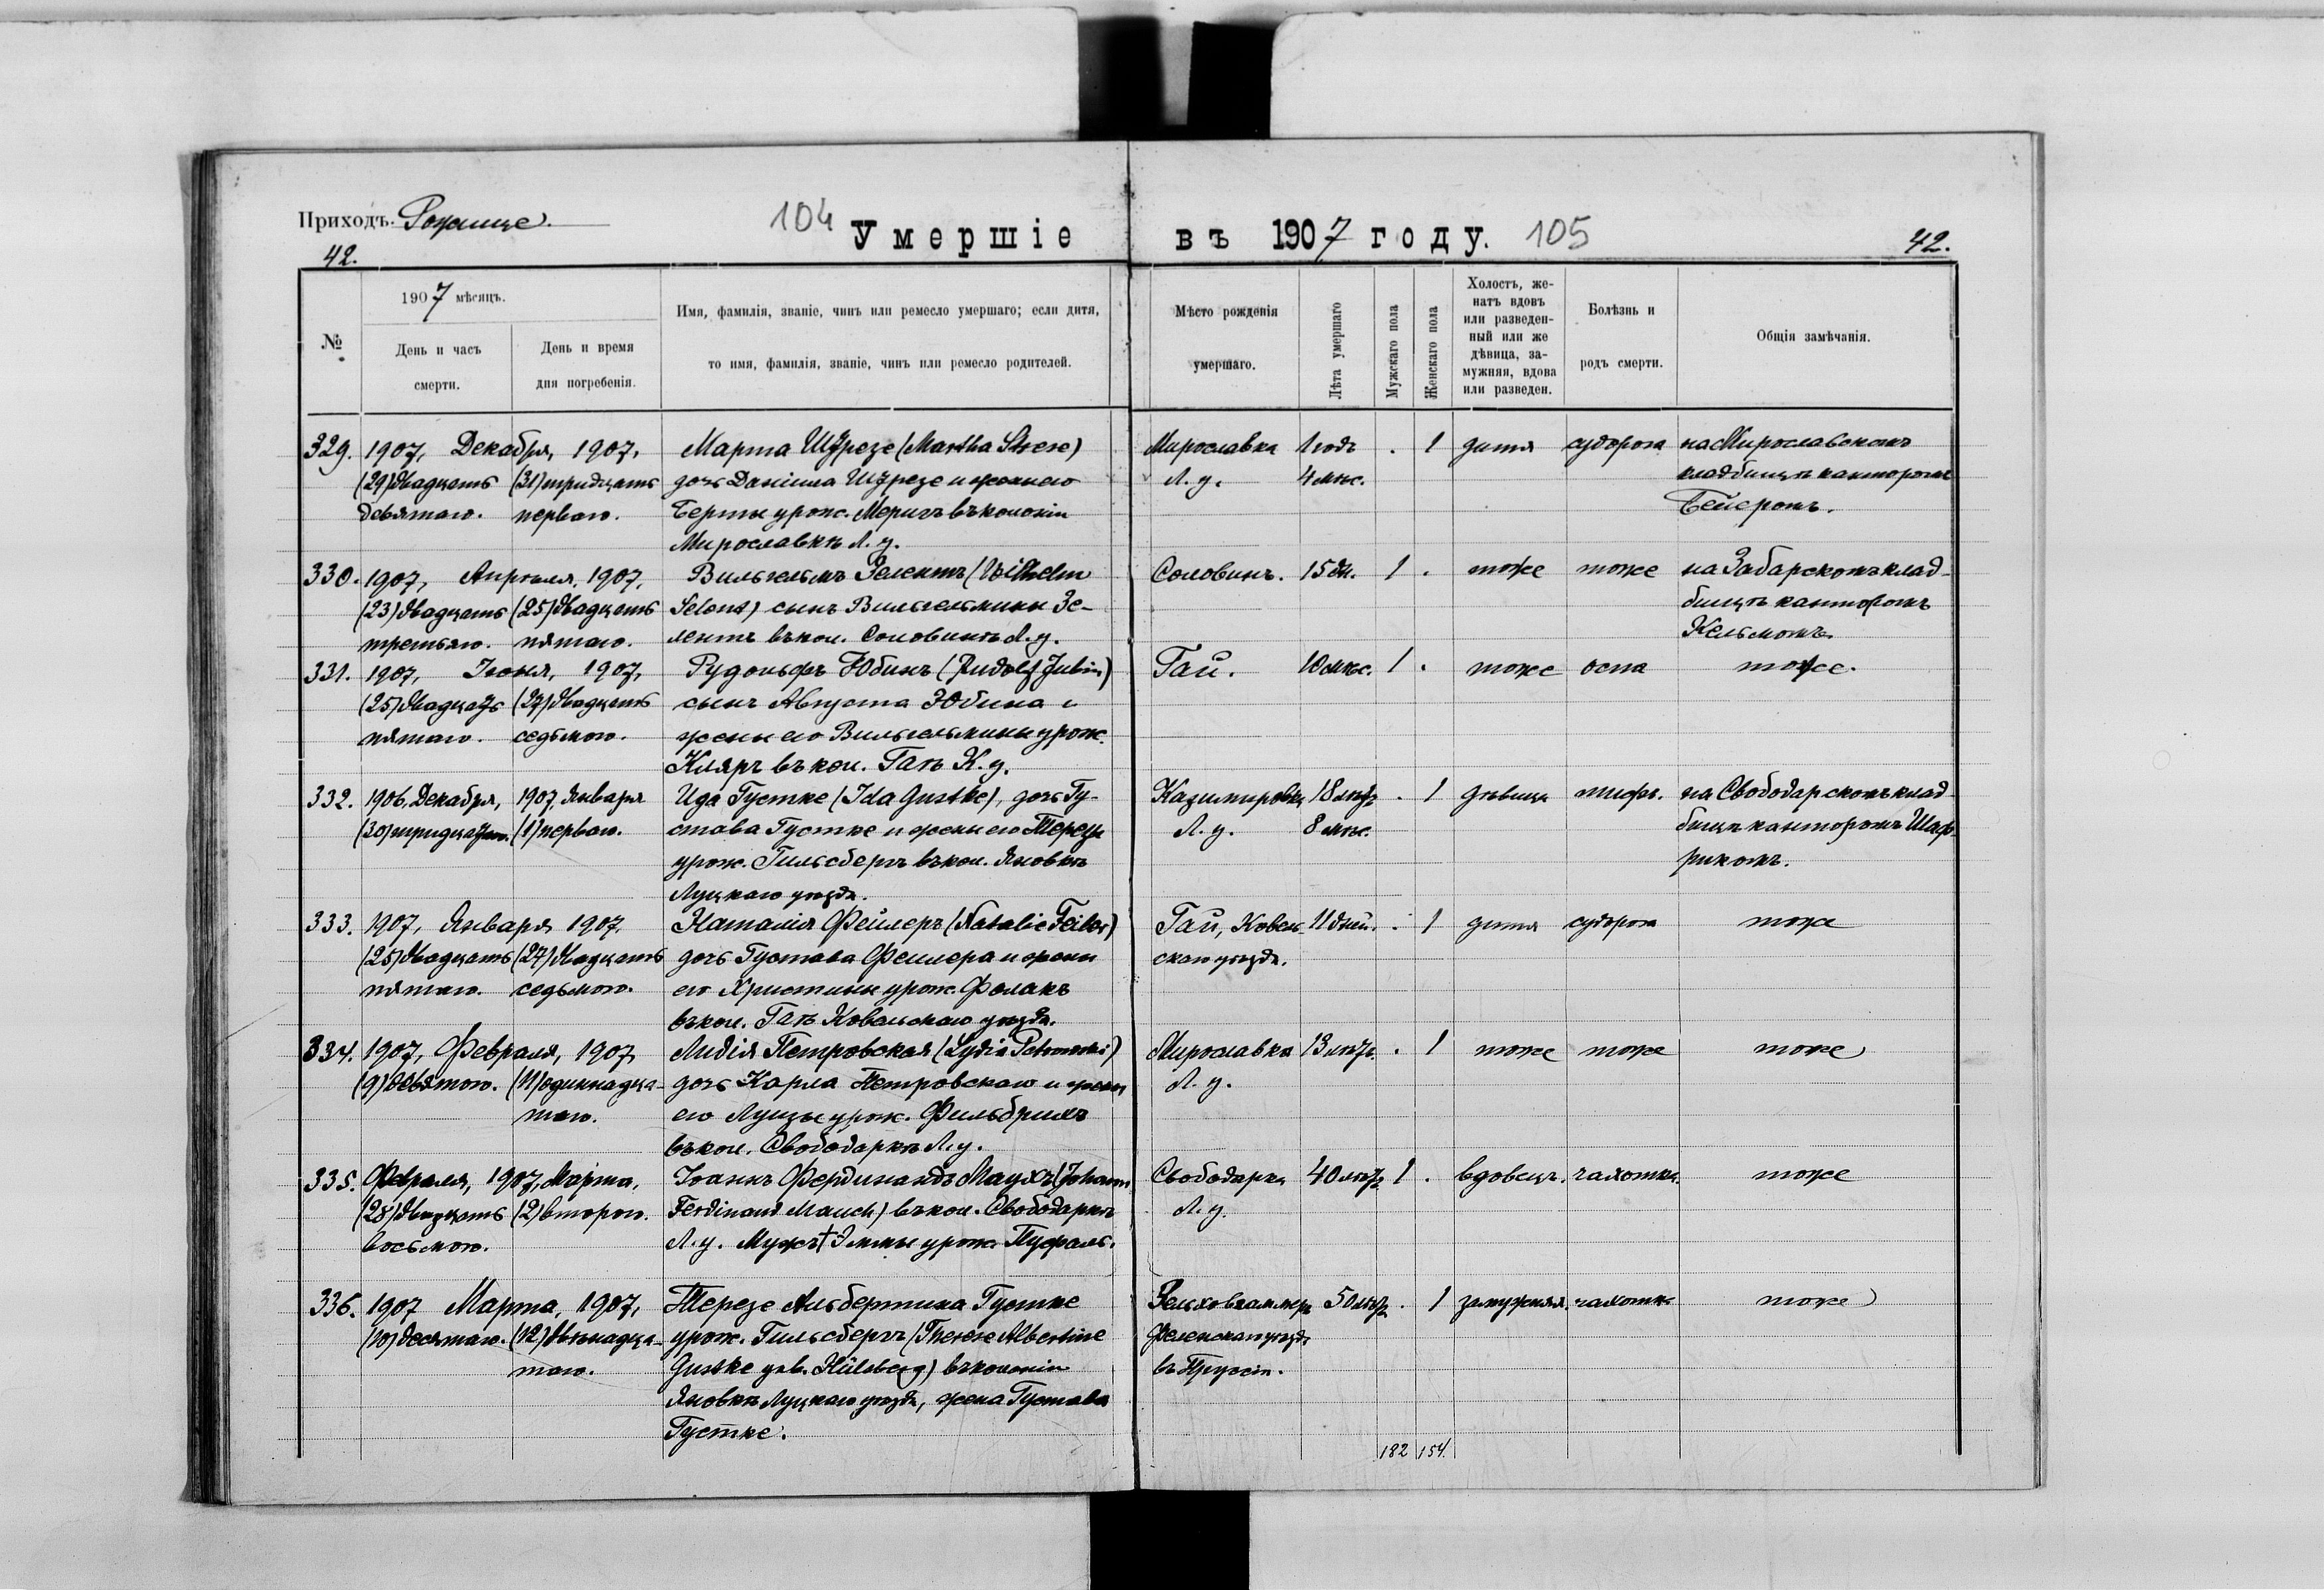 Приходъ. Рожище.
104
Умершіе
въ 1907 году.
105
42.
42.
№
1907 мѣсяцъ.
День и часъ
смерти.
День и время
дня погребенія.
Имя, фамилія, званіе, чинъ или ремесло умершаго; если дитя,
то имя, фамилія, званіе, чинъ или ремесло родителей.
Мѣсто рожденія
умершаго.
Лѣта умершаго
Мужскаго пола
Женскаго пола
Холостъ, же-
натъ вдовъ
или разведен-
ный или же
дѣвица, за-
мужняя, вдова
или разведен.
Болѣзнь и
родъ смерти.
Общія замѣчанія.
329. 1907, Декабря, 1907, Марта Штрезе (Martha Strese) Мирославка 1 годъ . 1 дитя судорога на Мирославскомъ
(29) двадцать (31) тридцать дочь Даніила Штрезе и жены его Л. у. 4 мѣс. кладбищѣ канторомъ
девятаго. перваго. Берты урож. Меригъ въ колоніи Бейеромъ.
Мирославкѣ Л. у.
330. 1907, Апрѣля, 1907, Вильгельмъ Зелентъ (Wilhelm Соловинъ. 15 дн. 1 . тоже тоже на Забарскомъ клад-
(23) двадцать (25) двадцать Selent) сынъ Вильгельмины Зе- бищѣ канторомъ
третьяго. пятаго. лентъ въ кол. Соловинѣ Л. у. Кельмомъ.
331. 1907, Іюня, 1907, Рудольфъ Юбинъ (Rudolf Jubin) Гай. 10 мѣс. 1 . тоже оспа тоже.
(25) двадцать (27) двадцать сынъ Августа Юбина и
пятаго. седьмого. жены его Вильгельмины урож.
Кляръ въ кол. Гаѣ К. у.
332. 1906, Декабря, 1907 Января Ида Густке (Ida Gustke), дочь Гу- Казимировка 18 лѣтъ . 1 дѣвица тифъ. на Свободарскомъ клад-
(30) тридцатаго. (1) перваго. става Густке и жены его Терезы Л. у. 8 мѣс. бищѣ канторомъ Шаф-
урож. Гильсбергъ въ кол. Яновкѣ рикомъ.
Луцкаго уѣзда.
333. 1907, Января 1907, Наталія Фейлеръ (Natalie Feiler) Гай, Ковель- 11 дней. . 1 дитя судорога тоже
(25) двадцать (27) двадцать дочь Густава Фейлера и жены скаго уѣзда.
пятаго. седьмого. его Христины урож. Фолакъ
въ кол. Гаѣ Ковельскаго уѣзда.
334. 1907, Февраля, 1907, Лидія Петровская (Lydia Petrowski) Мирославка 13 лѣтъ. . 1 тоже тоже тоже
(9) девятаго. (11) одиннадца- дочь Карла Петровскаго и жены Л. у.
таго. его Луизы урож. Фильбрихъ
въ кол. Свободаркѣ Л. у.
335. Февраля, 1907, Марта, Іоаннъ Фердинандъ Маухъ (Johann Свободарка 40 лѣтъ 1 . вдовецъ. чахотка. тоже
(28) двадцать (2) второго. Ferdinand Mauch) въ кол. Свободаркѣ Л. у.
восьмого. Л. у. Мужъ † Эммы урож. Пуфаль.
336. 1907 Марта, 1907, Терезе Альбертина Густке 50 лѣтъ . 1 замужняя. чахотка тоже
(10) десятаго. (12) двѣнадца- урож. Гильсбергъ (Therese Albertine
таго. Gustke geb. Hülsberg) въ колоніи въ Пруссіи.
Яновкѣ Луцкаго уѣзда, жена Густава
Густке.
182 154.